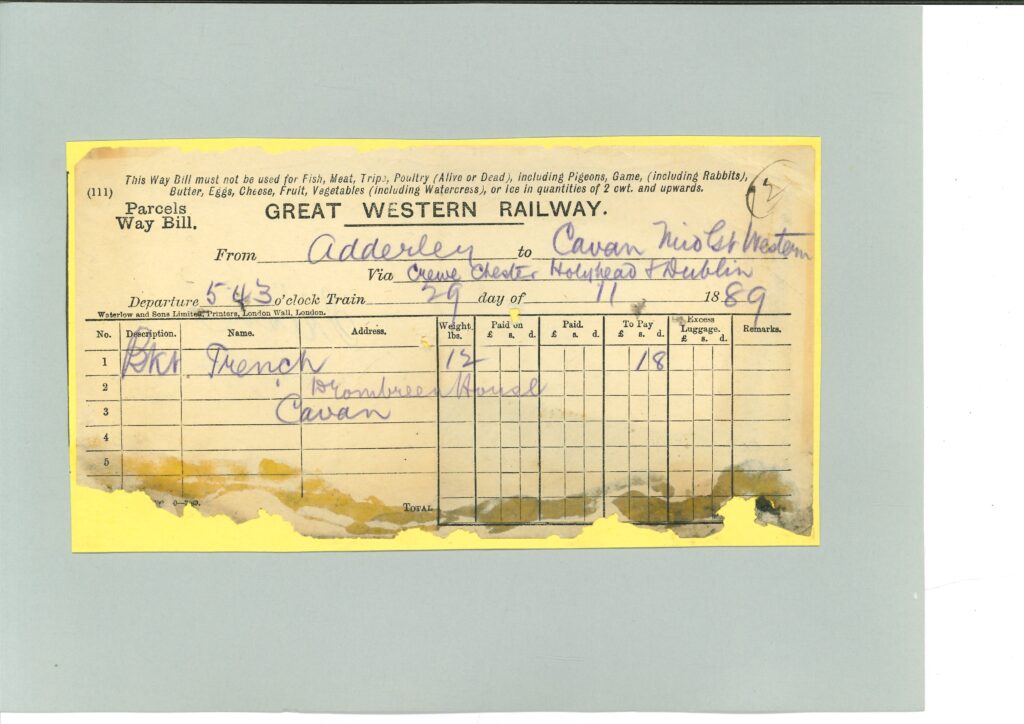 This Way Bill must not be used for Fish, Meat, Tripe, Poultry (Alive or Dead), including Pigeons, Game, (including Rabbits),
(111) Butter, Eggs, Cheese, Fruit, Vegetables (including Watercress), or Ice in quantities of 2 cwt. and upwards.
Parcels
Way Bill.
GREAT WESTERN RAILWAY.
From Adderley to Cavan Western
Via Crewe Chester Holyhead & Dublin
Departure 5 43 o'clock Train 29 day of 11 1889
Waterlow and Sons Limited, Printers, London Wall, London.
No. Description. Name. Address. Weight lbs. Paid on £ s. d. Paid. £ s. d. To Pay £ s. d. Excess Luggage. £ s. d. Remarks.
1 Bkt Trench 12 1 8
2 Drombreen House
3 Cavan
4
5
TOTAL